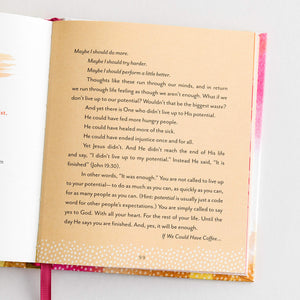 Maybe I should do more.
Maybe I should try harder.
Maybe I should perform a little better.
Thoughts like these run through our minds, and in return
we run through life feeling as though we aren't enough. What if we
don't live up to our potential? Wouldn't that be the biggest waste?
And yet there is One who didn't live up to His potential.
He could have fed more hungry people.
He could have healed more of the sick.
He could have ended injustice once and for all.
Yet Jesus didn't. And He didn't reach the end of His life
and say, "I didn't live up to my potential." Instead He said, "It is
finished" (John 19:30).
In other words, "It was enough." You are not called to live up
to your potential—to do as much as you can, as quickly as you can,
for as many people as you can. (Hint: potential is usually just a code
word for other people's expectations.) You are simply called to say
yes to God. With all your heart. For the rest of your life. Until the
day He says you are finished. And, yes, it will be enough.
If We Could Have Coffee...
99